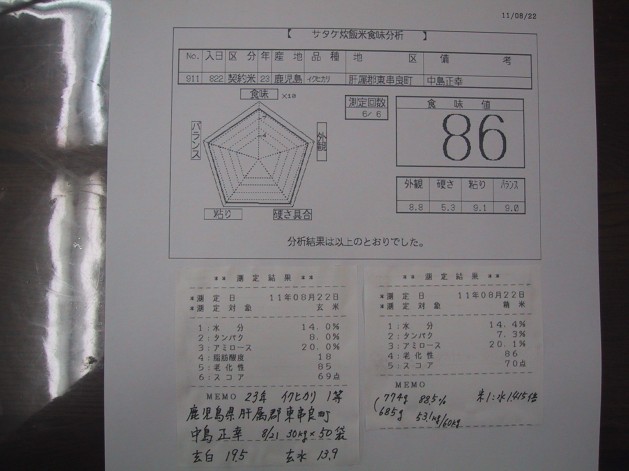 11/08/22
【 サタケ炊飯米食味分析 】
No. 入日 区分 年 産地 品種 地区 備考
911 822 契約米 23 鹿児島 イクヒカリ 肝属郡東串良町 中島正幸
食味 ×10
外観
硬さ具合
粘り
バランス
測定回数
6/ 6
食味値
86
外観 硬さ 粘り バランス
8.8 5.3 9.1 9.0
分析結果は以上のとおりでした。
** 測定結果 **
*測定日 11年08月22日
*測定対象 玄米
1:水分 14.0%
2:タンパク 8.0%
3:アミロース 20.0%
4:脂肪酸度 18
5:老化性 85
6:スコア 69点
MEMO 23年 イクヒカリ 1等
鹿児島県肝属郡東串良町
中島正幸 8/21 30kg×50袋
玄白 19.5 玄水 13.9
** 測定結果 **
*測定日 11年08月22日
*測定対象 精米
1:水分 14.4%
2:タンパク 7.3%
3:アミロース 20.1%
4:老化性 86
5:スコア 70点
MEMO
774g 88.5% 米1:水1.415倍
685g 53.1kg/60kg